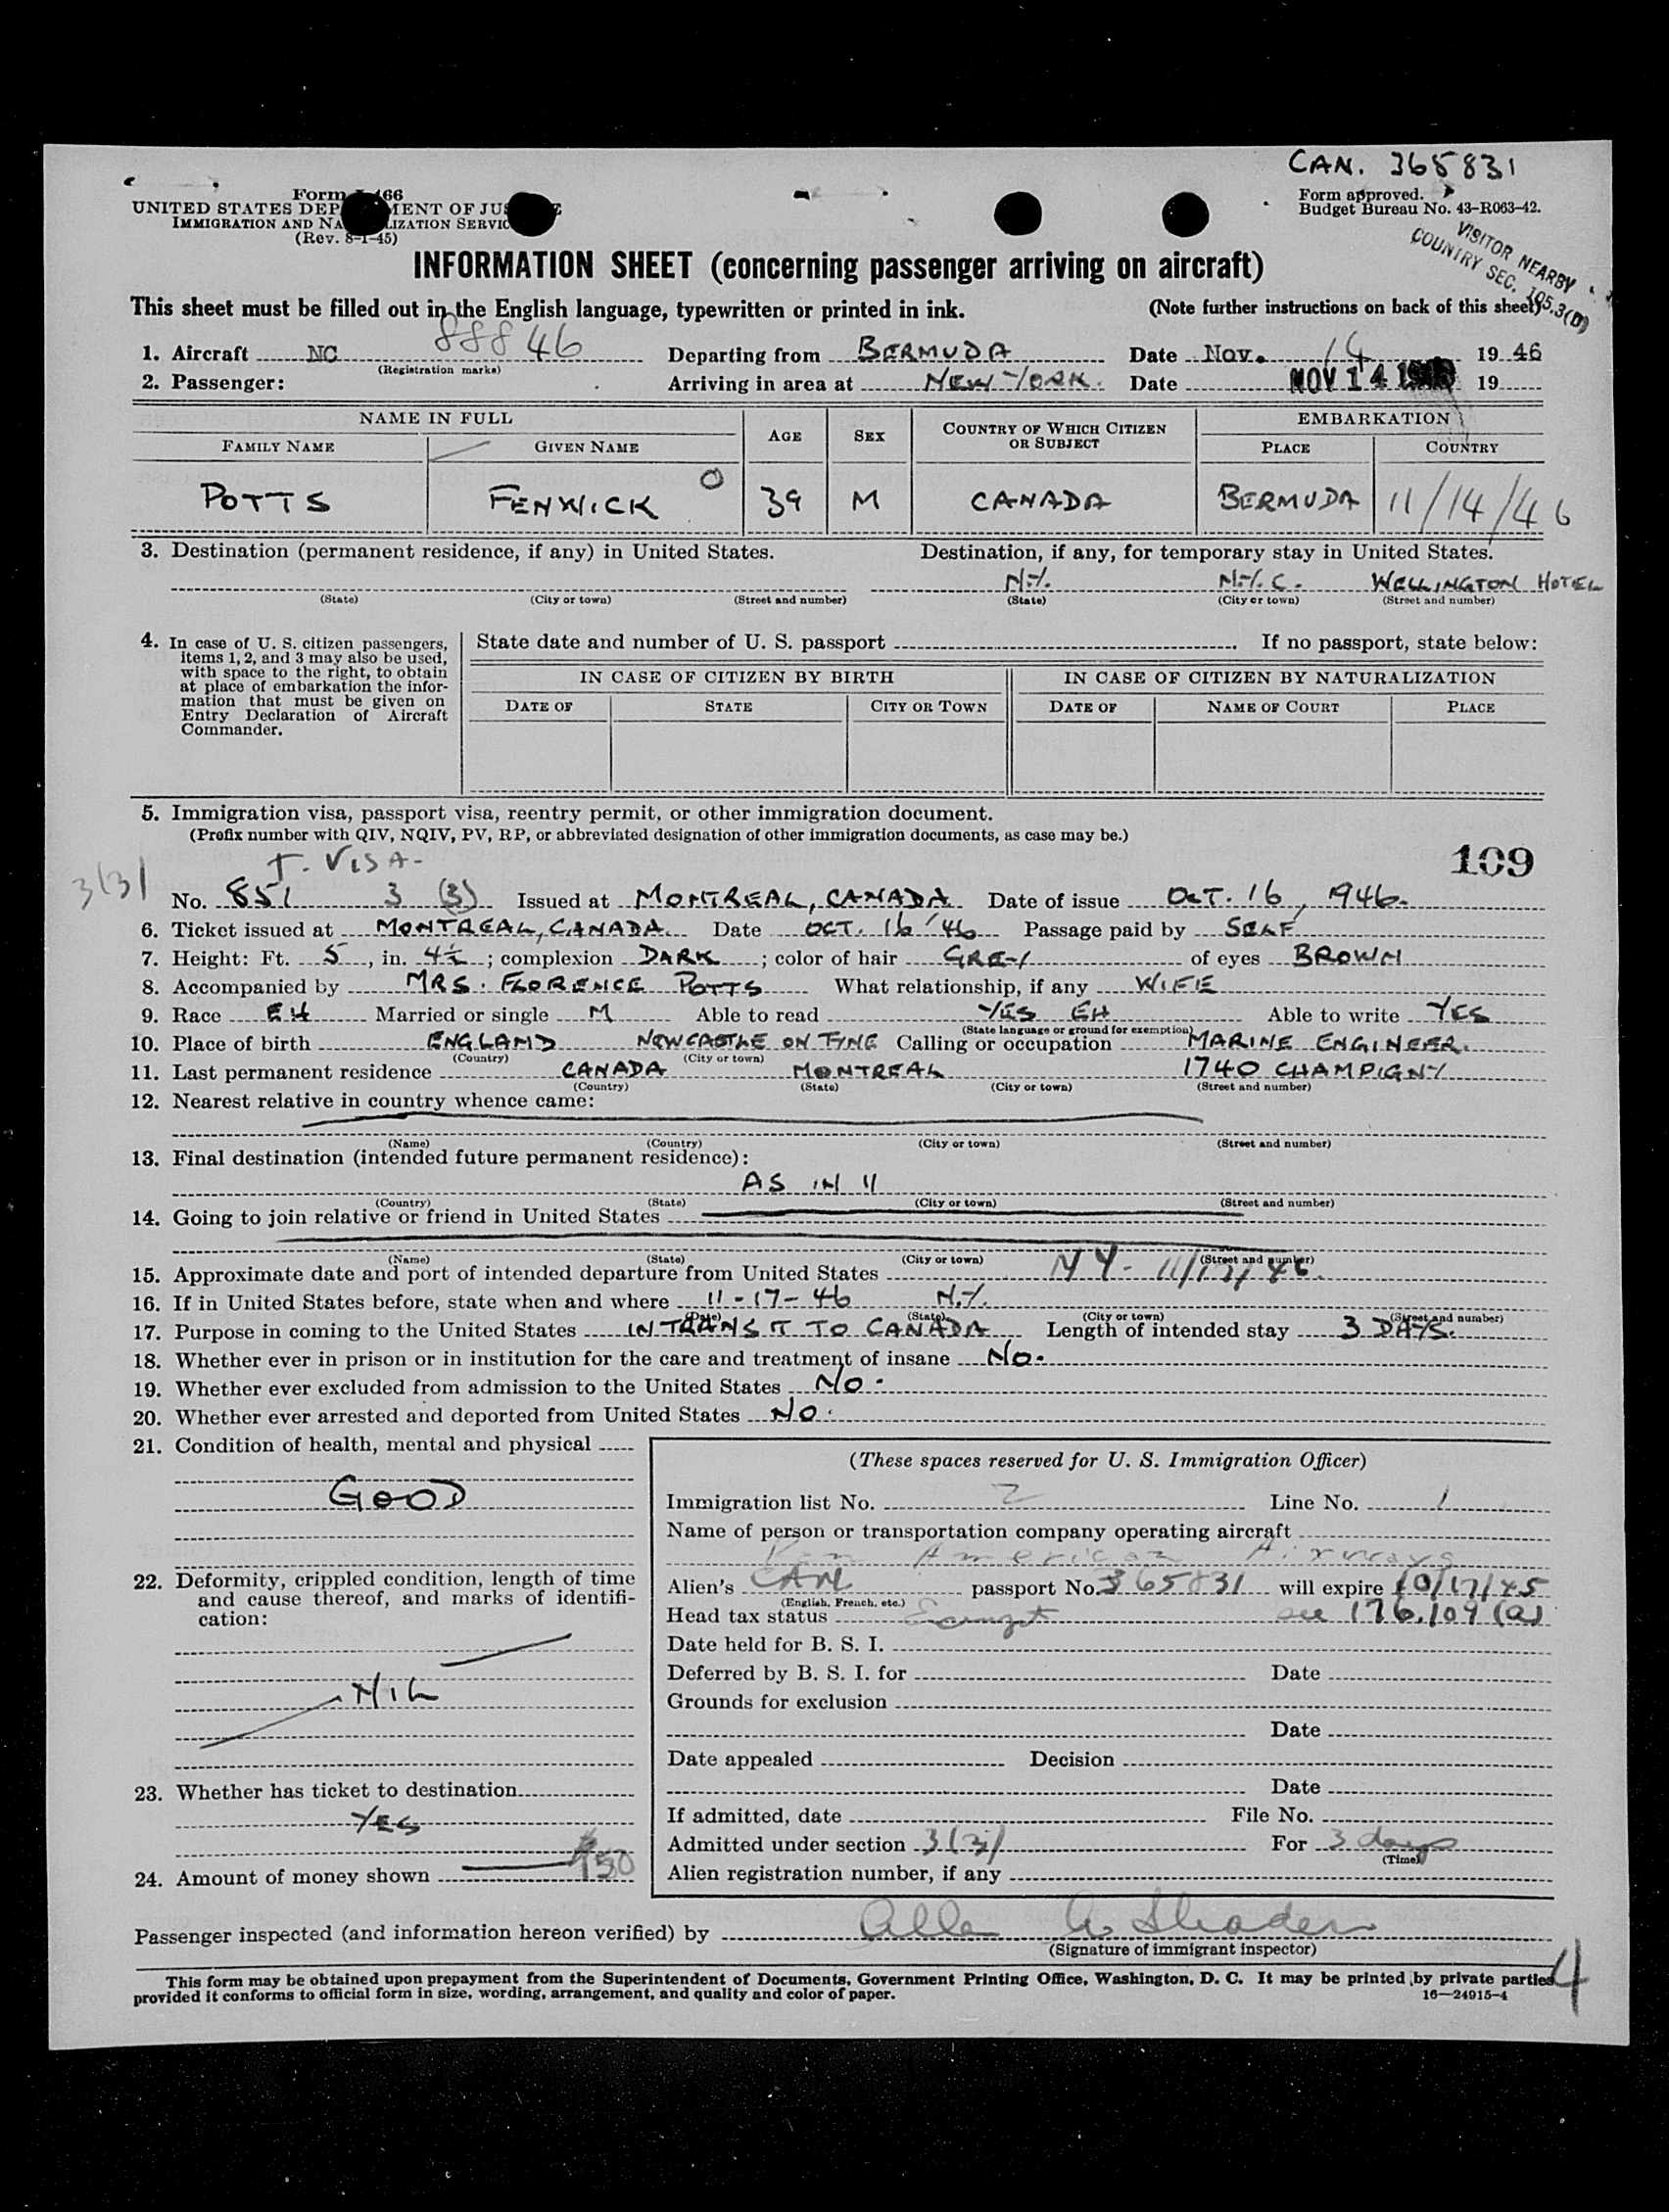 CAN. 365831
Form 466
UNITED STATES DEP MENT OF JUS
IMMIGRATION AND NA LIZATION SERVIC
(Rev. 8-1-45)
Form approved.
Budget Bureau No. 43-R063-42.
VISITOR NEARBY
COUNTRY SEC. 105.3(D)
INFORMATION SHEET (concerning passenger arriving on aircraft)
This sheet must be filled out in the English language, typewritten or printed in ink. (Note further instructions on back of this sheet)
1. Aircraft NC 88846 Departing from BERMUDA Date Nov. 14 19 46
(Registration marks)
2. Passenger: Arriving in area at NEW YORK. Date NOV 14 1946 19
NAME IN FULL AGE SEX COUNTRY OF WHICH CITIZEN OR SUBJECT EMBARKATION
FAMILY NAME GIVEN NAME PLACE COUNTRY
POTTS FENWICK O 39 M CANADA BERMUDA 11/14/46
3. Destination (permanent residence, if any) in United States. Destination, if any, for temporary stay in United States.
N.Y. N.Y.C. WELLINGTON HOTEL
(State) (City or town) (Street and number) (State) (City or town) (Street and number)
4. In case of U. S. citizen passengers, items 1, 2, and 3 may also be used, with space to the right, to obtain at place of embarkation the information that must be given on Entry Declaration of Aircraft Commander.
State date and number of U. S. passport . If no passport, state below:
IN CASE OF CITIZEN BY BIRTH IN CASE OF CITIZEN BY NATURALIZATION
DATE OF STATE CITY OR TOWN DATE OF NAME OF COURT PLACE
5. Immigration visa, passport visa, reentry permit, or other immigration document.
(Prefix number with QIV, NQIV, PV, RP, or abbreviated designation of other immigration documents, as case may be.)
109
T. VISA-
3(3)
No. 851 3 (3) Issued at MONTREAL, CANADA Date of issue OCT. 16, 1946.
6. Ticket issued at MONTREAL, CANADA Date OCT. 16 '46 Passage paid by SELF
7. Height: Ft. 5, in. 4½; complexion DARK; color of hair GREY of eyes BROWN
8. Accompanied by MRS. FLORENCE POTTS What relationship, if any WIFE
9. Race EH Married or single M Able to read YES EH Able to write YES
(State language or ground for exemption)
10. Place of birth ENGLAND NEWCASTLE ON TYNE Calling or occupation MARINE ENGINEER.
(Country) (City or town)
11. Last permanent residence CANADA MONTREAL 1740 CHAMPIGNY
(Country) (State) (City or town) (Street and number)
12. Nearest relative in country whence came:
(Name) (Country) (City or town) (Street and number)
13. Final destination (intended future permanent residence):
AS IN 11
(Country) (State) (City or town) (Street and number)
14. Going to join relative or friend in United States
(Name) (State) (City or town) (Street and number)
15. Approximate date and port of intended departure from United States NY- 11/17/46.
16. If in United States before, state when and where 11-17-46 N.Y.
(Date) (State) (City or town) (Street and number)
17. Purpose in coming to the United States IN TRANSIT TO CANADA Length of intended stay 3 DAYS.
18. Whether ever in prison or in institution for the care and treatment of insane NO.
19. Whether ever excluded from admission to the United States NO.
20. Whether ever arrested and deported from United States NO.
21. Condition of health, mental and physical
GOOD
22. Deformity, crippled condition, length of time and cause thereof, and marks of identification:
NIL
23. Whether has ticket to destination
YES
24. Amount of money shown $150
(These spaces reserved for U. S. Immigration Officer)
Immigration list No. 2 Line No. 1
Name of person or transportation company operating aircraft
Pan American Airways
Alien's CAN passport No. 365831 will expire 10/17/45
(English, French, etc.)
Head tax status Exempt see 176.109 (a)
Date held for B. S. I.
Deferred by B. S. I. for Date
Grounds for exclusion
Date
Date appealed Decision
Date
If admitted, date File No.
Admitted under section 3(3) For 3 days
(Time)
Alien registration number, if any
Passenger inspected (and information hereon verified) by
(Signature of immigrant inspector)
This form may be obtained upon prepayment from the Superintendent of Documents, Government Printing Office, Washington, D. C. It may be printed by private parties
provided it conforms to official form in size, wording, arrangement, and quality and color of paper. 16—24915-4
4